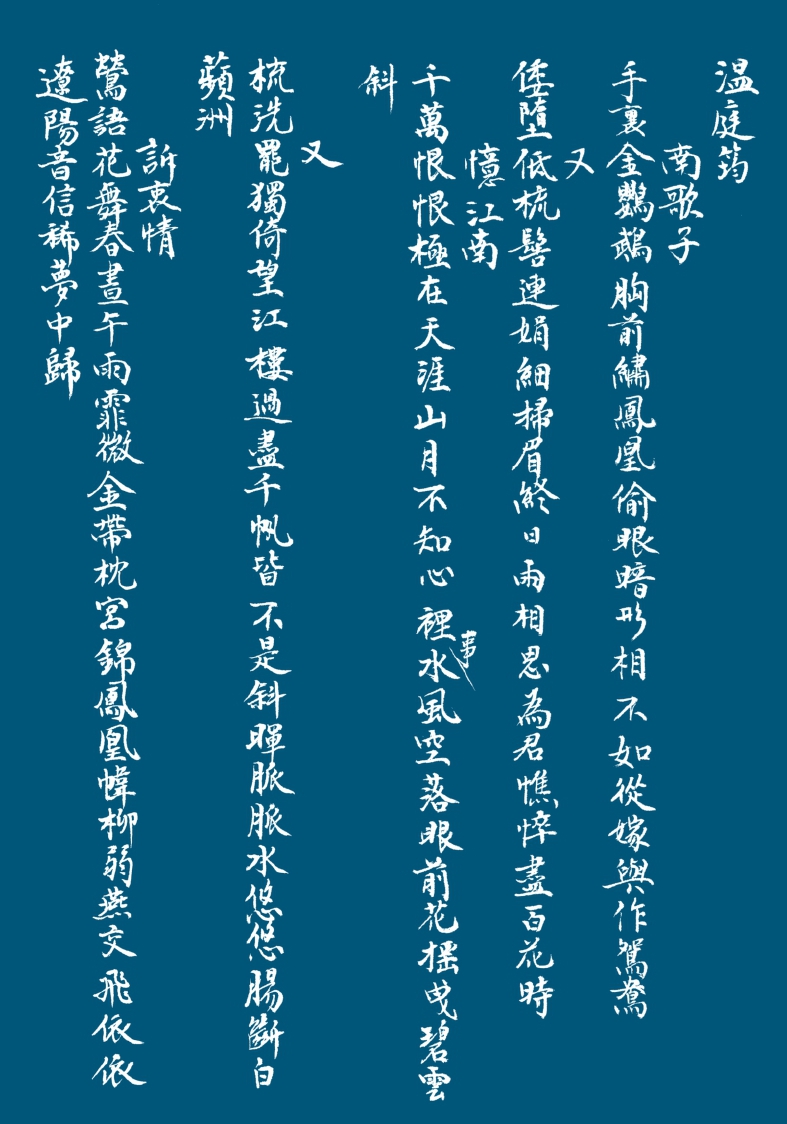 温庭筠
南歌子
手裏金鸚鵡胸前繡鳳凰偷眼暗形相不如從嫁與作鴛鴦
又
倭墮低梳髻連娟細掃眉終日兩相思為君憔悴盡百花時
憶江南
千萬恨恨極在天涯山月不知心裡水風空落眼前花搖曳碧雲
事
斜
又
梳洗罷獨倚望江樓過盡千帆皆不是斜暉脈脈水悠悠腸斷白
蘋洲
訴衷情
鶯語花舞春晝午雨霏微金帶枕宮錦鳳凰帷柳弱燕交飛依依
遼陽音信稀夢中歸